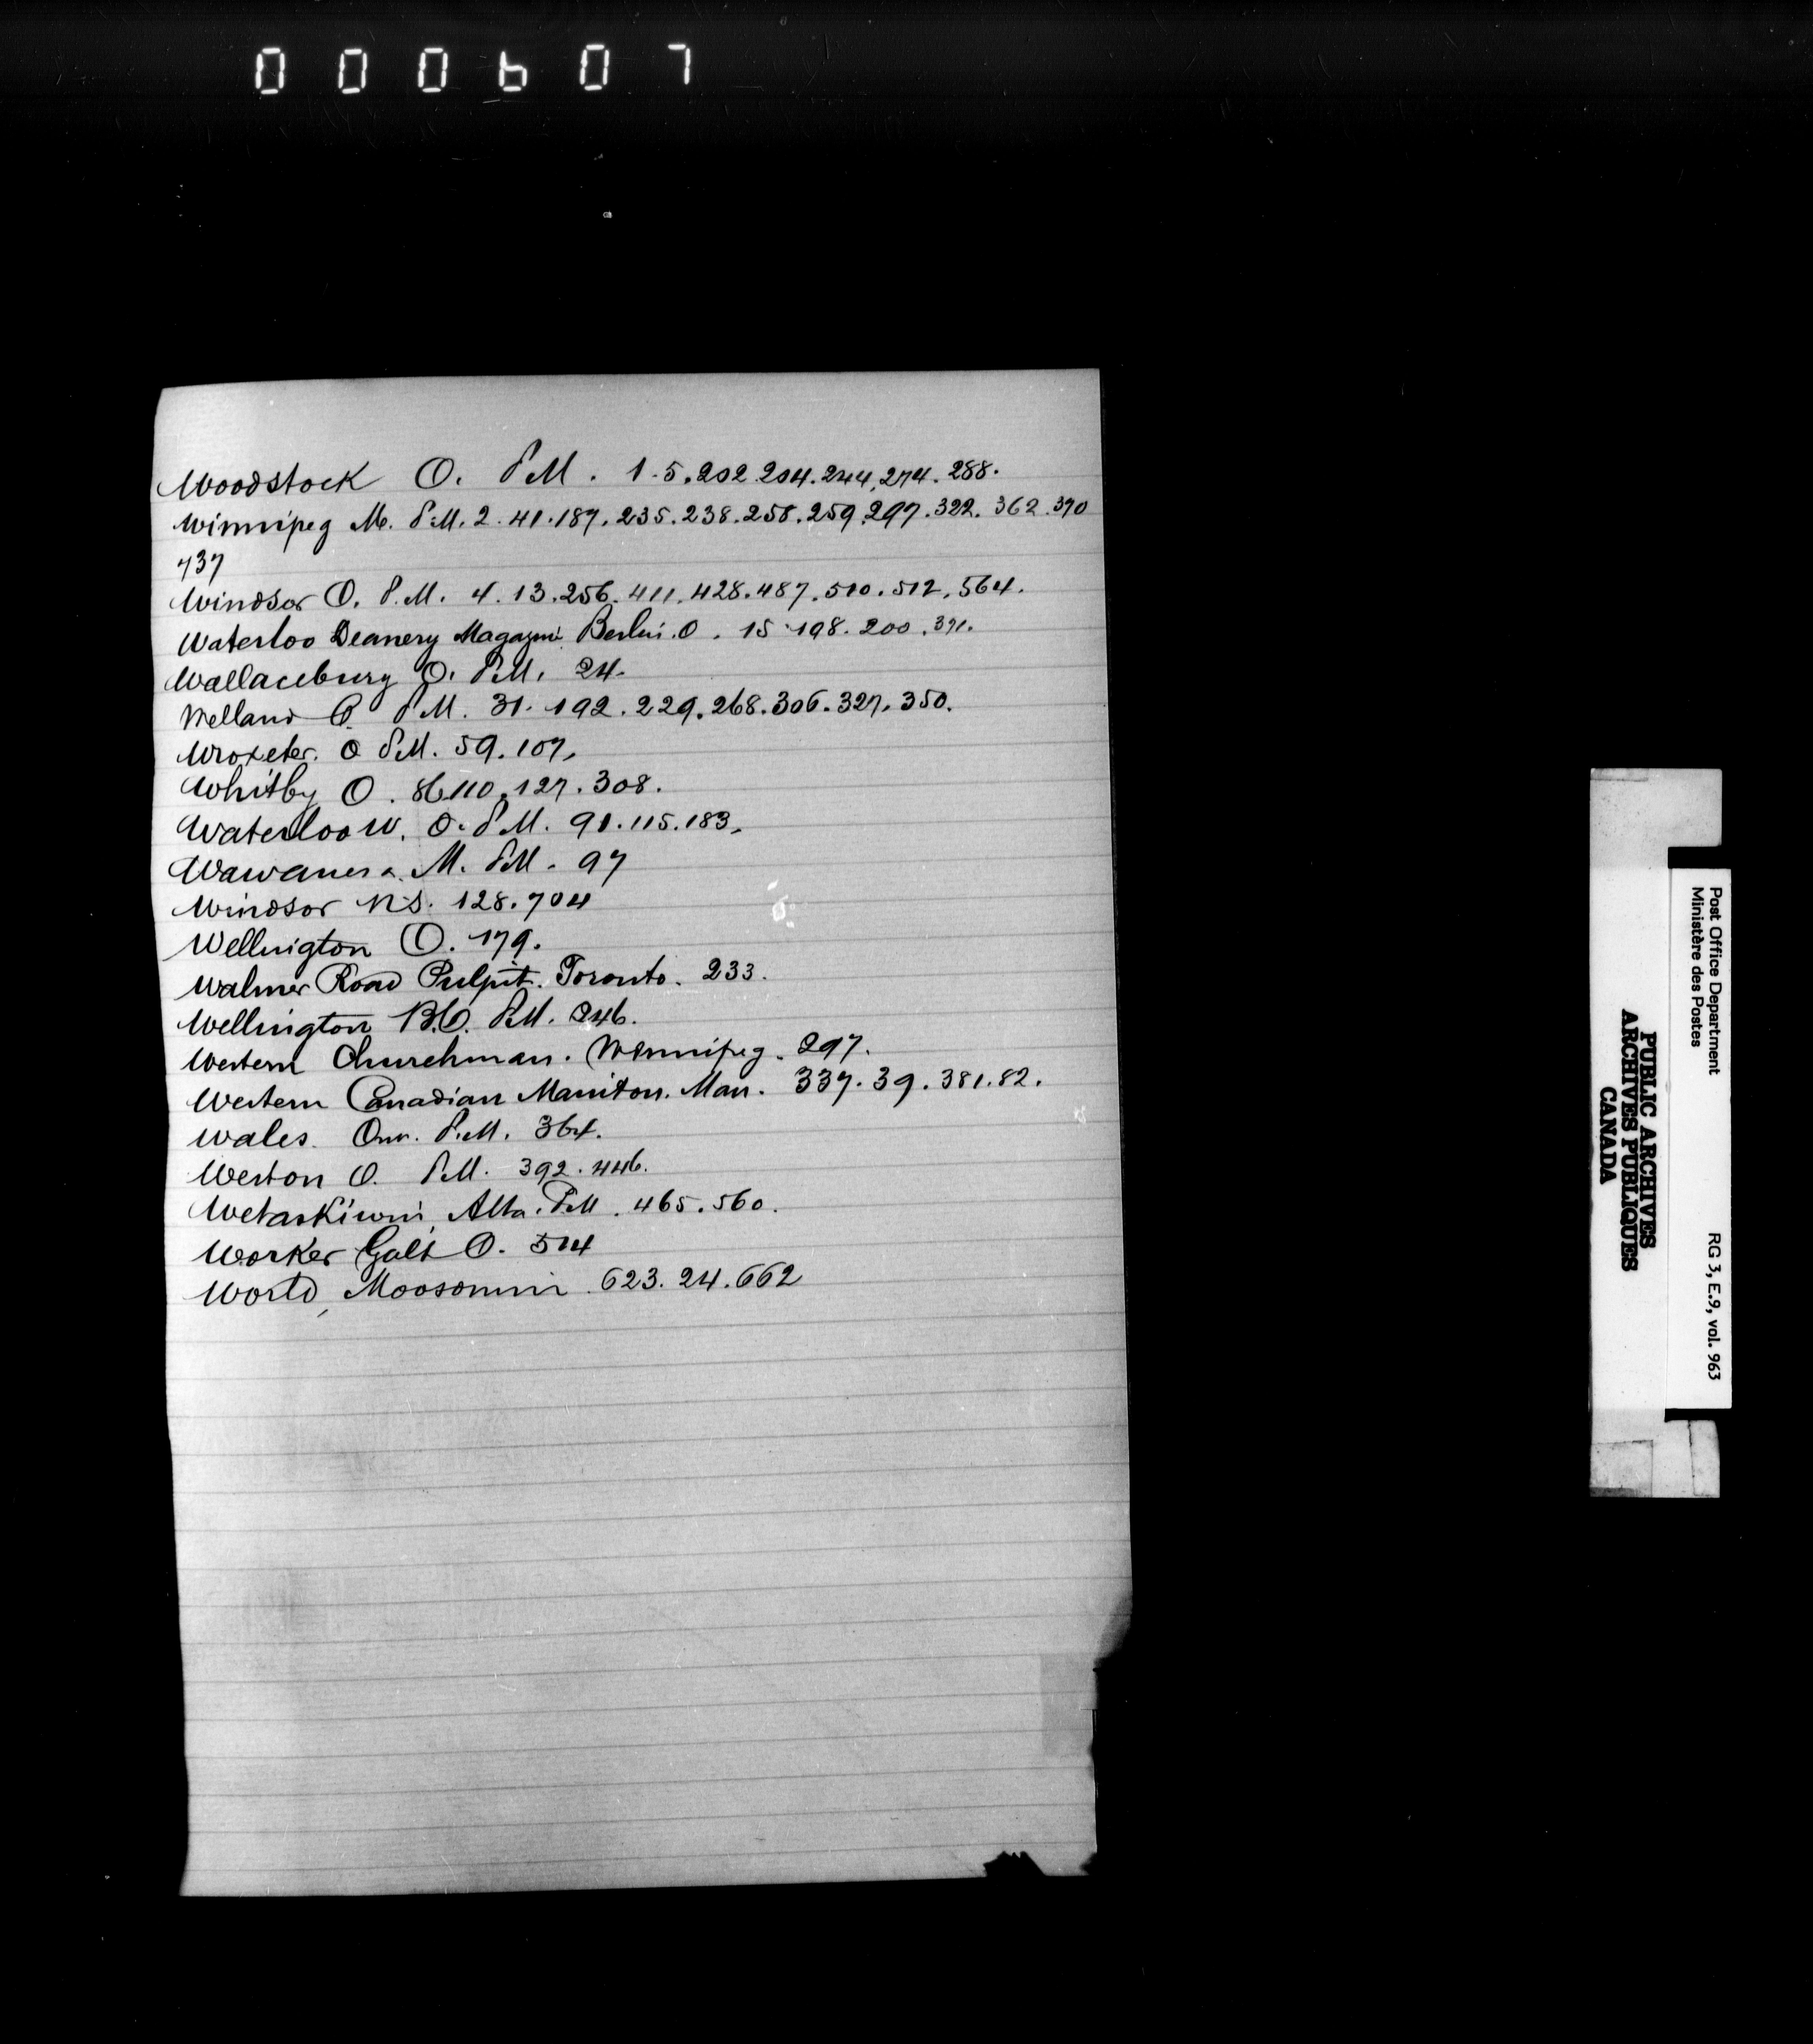 000607
Woodstock O. P.M. 1.5.202.204.244.274.288.
Winnipeg M. P.M. 2.41.187.235.238.258.259.297.322.362.370
737
Windsor O. P.M. 4.13.256.411.428.487.510.512.564.
Waterloo Deanery Magazine Berlin. O. 15.198.200.391.
Wallaceburg O. P.M. 24.
Welland O P.M. 31.192.229.268.306.327.350.
Wroxeter. O P.M. 59.107.
Whitby O. 86 110.127.308.
Waterloo W. O. P.M. 91.115.183.
Wawanesa. M. P.M. 97
Windsor N.S. 128.704
Wellington O. 179.
Walmer Road Pulpit. Toronto. 233.
Wellington B.C. P.M. 246.
Western Churchman. Winnipeg. 297.
Western Canadian Manitou. Man. 337.39.381.82.
Wales. Ont. P.M. 364.
Weston O. P.M. 392.446.
Wetaskiwin, Alta. P.M. 465.560.
Worker Galt O. 514
World, Moosomin. 623.24.662
Post Office Department
Ministère des Postes
RG 3, E.9, vol. 963
PUBLIC ARCHIVES
ARCHIVES PUBLIQUES
CANADA